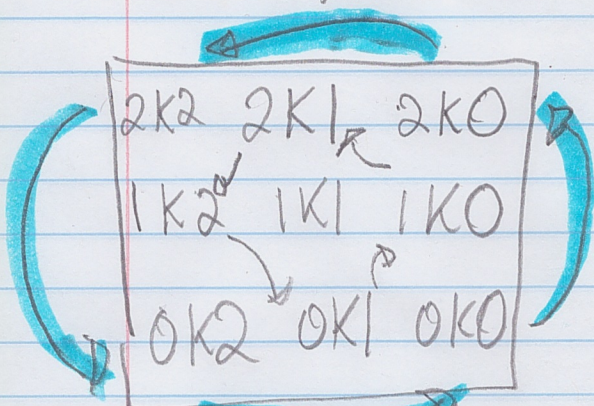 2K2 2K1 2K0
1K2 1K1 1K0
0K2 0K1 0K0